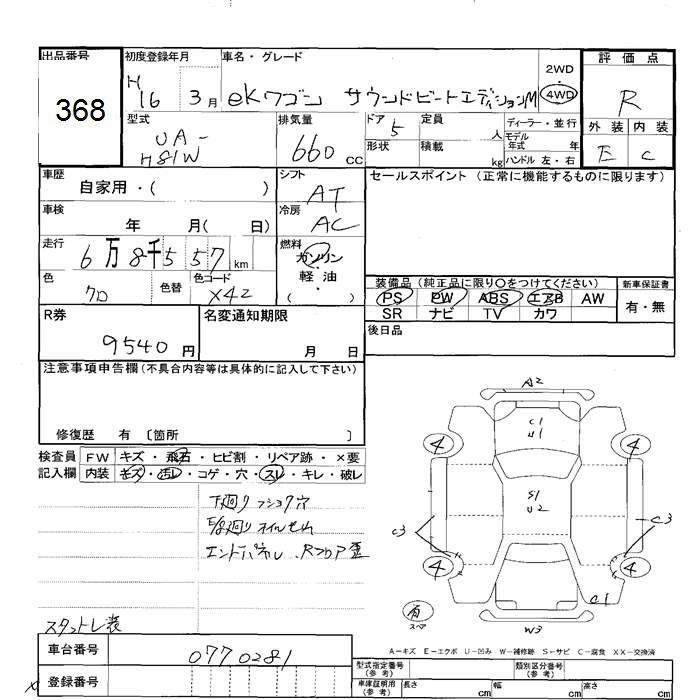 出品番号
368
初度登録年月
H 16 3月
車名・グレード
eKワゴン サウンドビートエディションM
2WD
・
4WD
評価点
R
外装 内装
E C
型式
UA-
H81W
排気量
660 CC
ドア 5
形状
定員 人
積載 kg
ディーラー・並行
モデル年式 年
ハンドル 左・右
車歴
自家用・( )
シフト
AT
セールスポイント (正常に機能するものに限ります)
車検
年 月( 日)
冷房
AC
走行
6万8千557km
燃料
ガソリン
・
軽油
・
( )
色
クロ
色替
色コード
X42
装備品 (純正品に限り○をつけてください)
PS PW ABS エアB AW
SR ナビ TV カワ
新車保証書
有・無
R券
9540円
名変通知期限
月 日
後日品
注意事項申告欄 (不具合内容等は具体的に記入して下さい)
修復歴 有 〔箇所 〕
検査員
記入欄
FW キズ・飛石・ヒビ割・リペア跡・×要
内装 キズ・汚レ・コゲ・穴・スレ・キレ・破レ
下廻り フショク穴
エンドパネル、Rフロア歪
スタットレ装
A2
C1
U1
4 4
S1
U2
C3 C3
4 4
C1
有
スペア
W3
A-キズ E-エクボ U-凹み W-補修跡 S-サビ C-腐食 XX-交換済
車台番号
0770281
登録番号
型式指定番号
(参考)
類別区分番号
(参考)
車庫証明用
(参考)
長さ cm 幅 cm 高さ cm